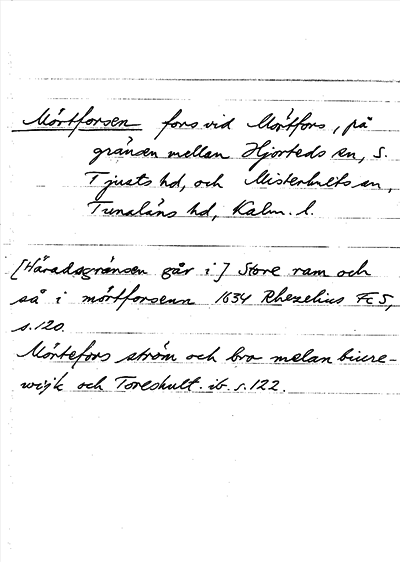 Mörtforsen fors vid Mörtfors, på
gränsen mellan Hjorteds sn, S.
Tjusts hd, och Misterhults sn,
Tunaläns hd, Kalm. l.
[Häradsgränsen går i] Store ram och
så i mörtforsenn 1634 Rhezelius Fc5,
s.120.
Mörtefors ström och bro melan biure-
wijk och Toreshult. ib. s.122.